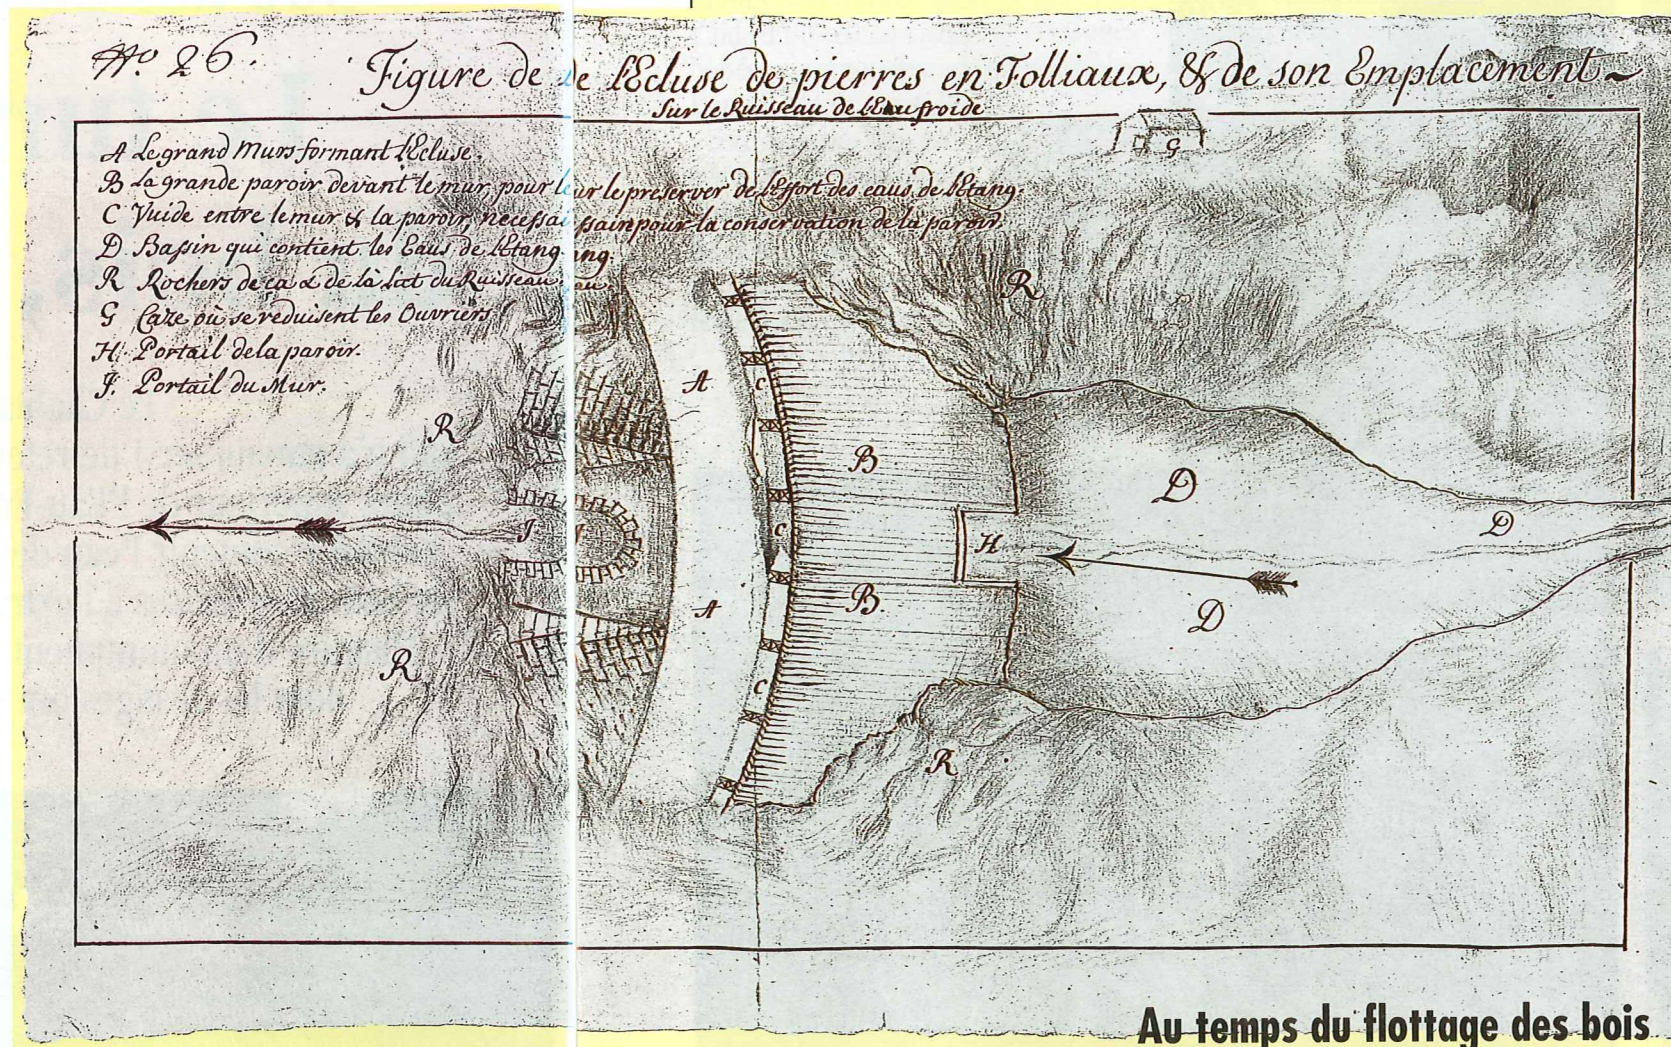 No. 26.
Figure de de l'Ecluse de pierres en Folliaux, & de son Emplacement
Sur le Ruisseau de l'Eau froide
A Le grand Murs formant l'Ecluse.
B La grande paroir devant le mur, pour l ur le preserver de l'Effort des eaus de l'Etang.
C Vuide entre le mur & la paroir, necessai ssair pour la conservation de la paroir.
D. Bassin qui contient les Eaus de l'Etang ang.
R Rochers de ça & de là lict du Ruisseau au
G Caze où se reduisent les Ouvriers
H. Portail de la paroir.
J. Portail du Mur.
G
R
A
C
B
R
D
D
J
J
C
H
A
B.
D
R
C
R
Au temps du flottage des bois